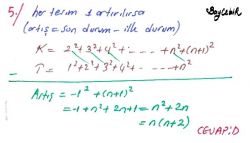 5./ her terim 1 artırılırsa
(artış = son durum - ilk durum)
K = 2²+3²+4²+ ----- + n²+(n+1)²
T = 1²+2²+3²+4²+ ----- +n²
Artış = -1² + (n+1)²
= -1+n²+2n+1 = n²+2n
= n(n+2)
CEVAP: D